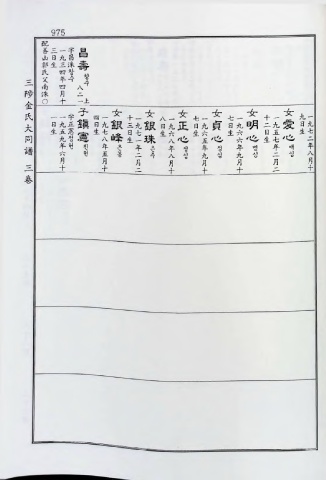 975
三陟金氏大同譜 三卷
昌壽 창수 八二一 上
字昌洙창수
一九三四年四月十
三日生
配善山郭氏父南洙〇
一九七二年八月十
九日生
女愛心 애심
一九五七年二月二
十二日生
女明心 명심
一九六六年九月十
七日生
女貞心 정심
一九六五年九月十
七日生
女正心 정심
一九六八年八月十
八日生
女銀珠 은주
一九七一年二月二
十一日生
女銀峰 은봉
一九七八年五月十
四日生
子鎭憲 진헌
字正憲정헌
一九五九年六月十
一日生